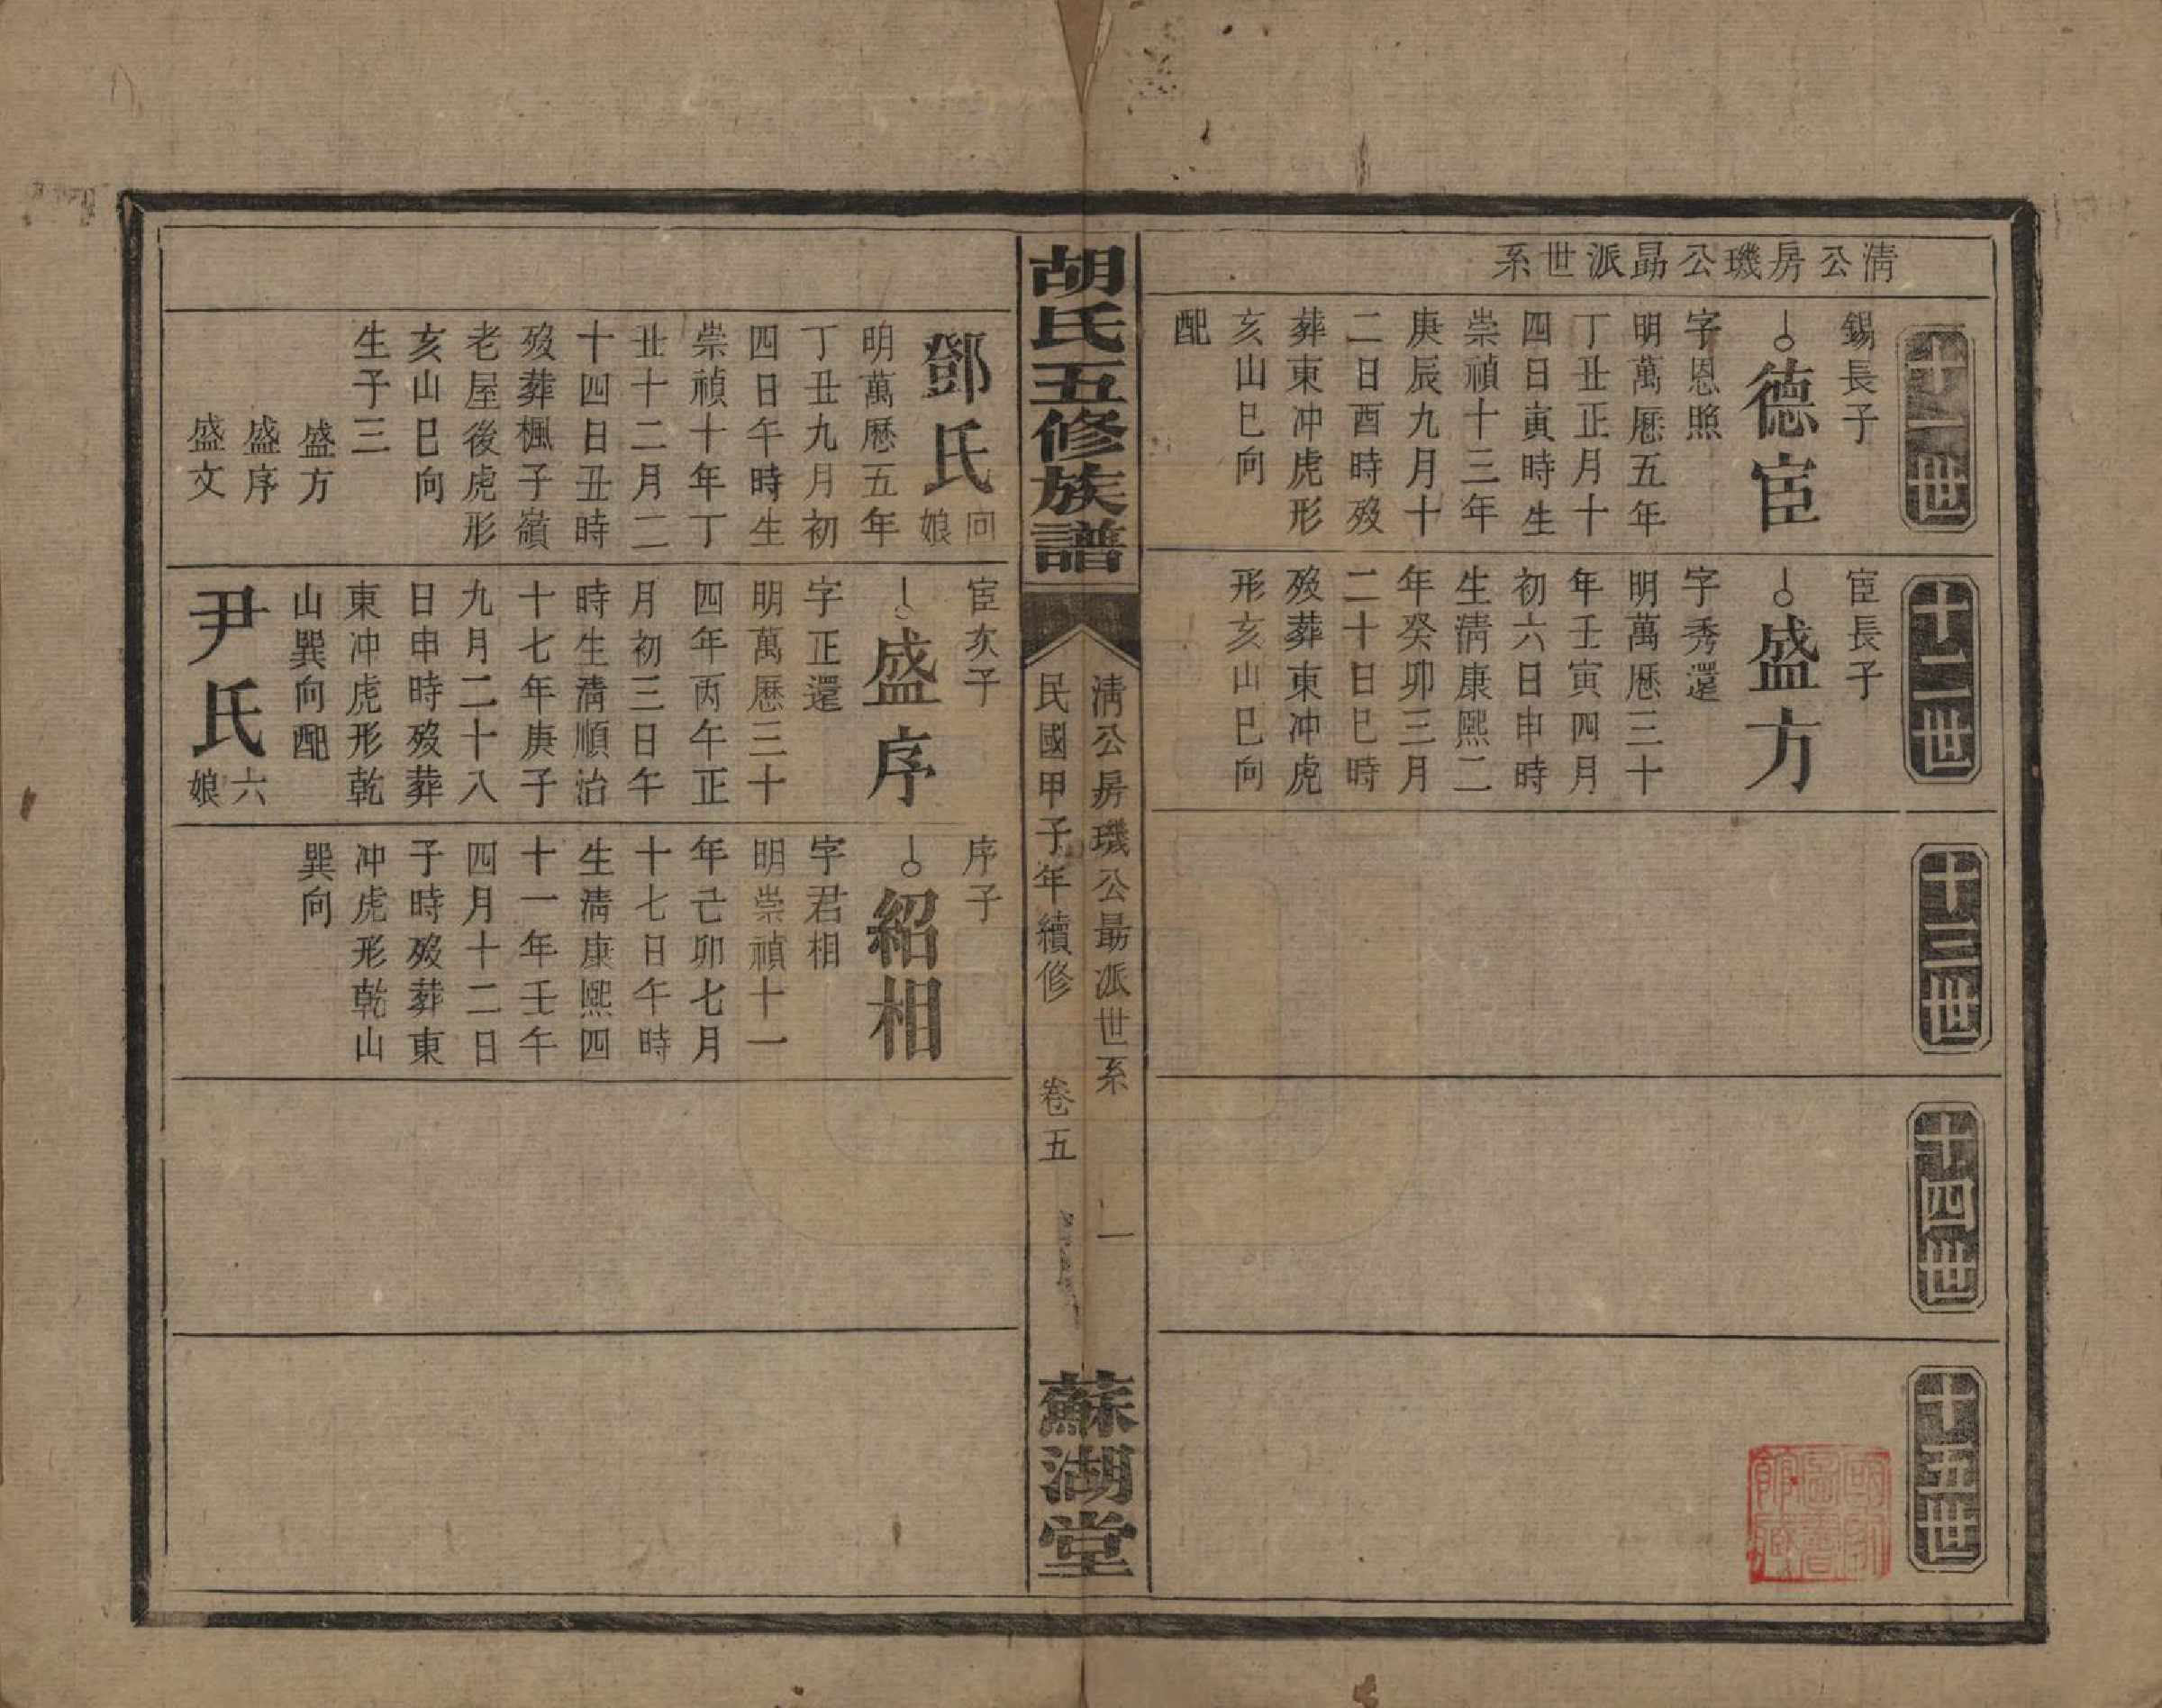 清公房璣公勗派世系
十一世
錫長子
德宦
字恩照
明萬厯五年
丁丑正月十
四日寅時生
崇禎十三年
庚辰九月十
二日酉時殁
葬東冲虎形
亥山巳向
配
十二世
宦長子
盛方
字秀還
明萬厯三十
年壬寅四月
初六日申時
生清康熙二
年癸卯三月
二十日巳時
殁葬東冲虎
形亥山巳向
十三世
十四世
十五世
胡氏五修族譜
清公房璣公勗派世系
一
民國甲子年續修
卷五
蘇湖堂
鄧氏
回娘
明萬厯五年
丁丑九月初
四日午時生
崇禎十年丁
丑十二月二
十四日丑時
殁葬楓子嶺
老屋後虎形
亥山巳向
生子三
盛方
盛序
盛文
宦次子
盛序
字正還
明萬厯三十
四年丙午正
月初三日午
時生清順治
十七年庚子
九月二十八
日申時殁葬
東冲虎形乾
山巽向配
尹氏
六娘
序子
紹相
字君相
明崇禎十一
年己卯七月
十七日午時
生清康熙四
十一年壬午
四月十二日
子時殁葬東
冲虎形乾山
巽向